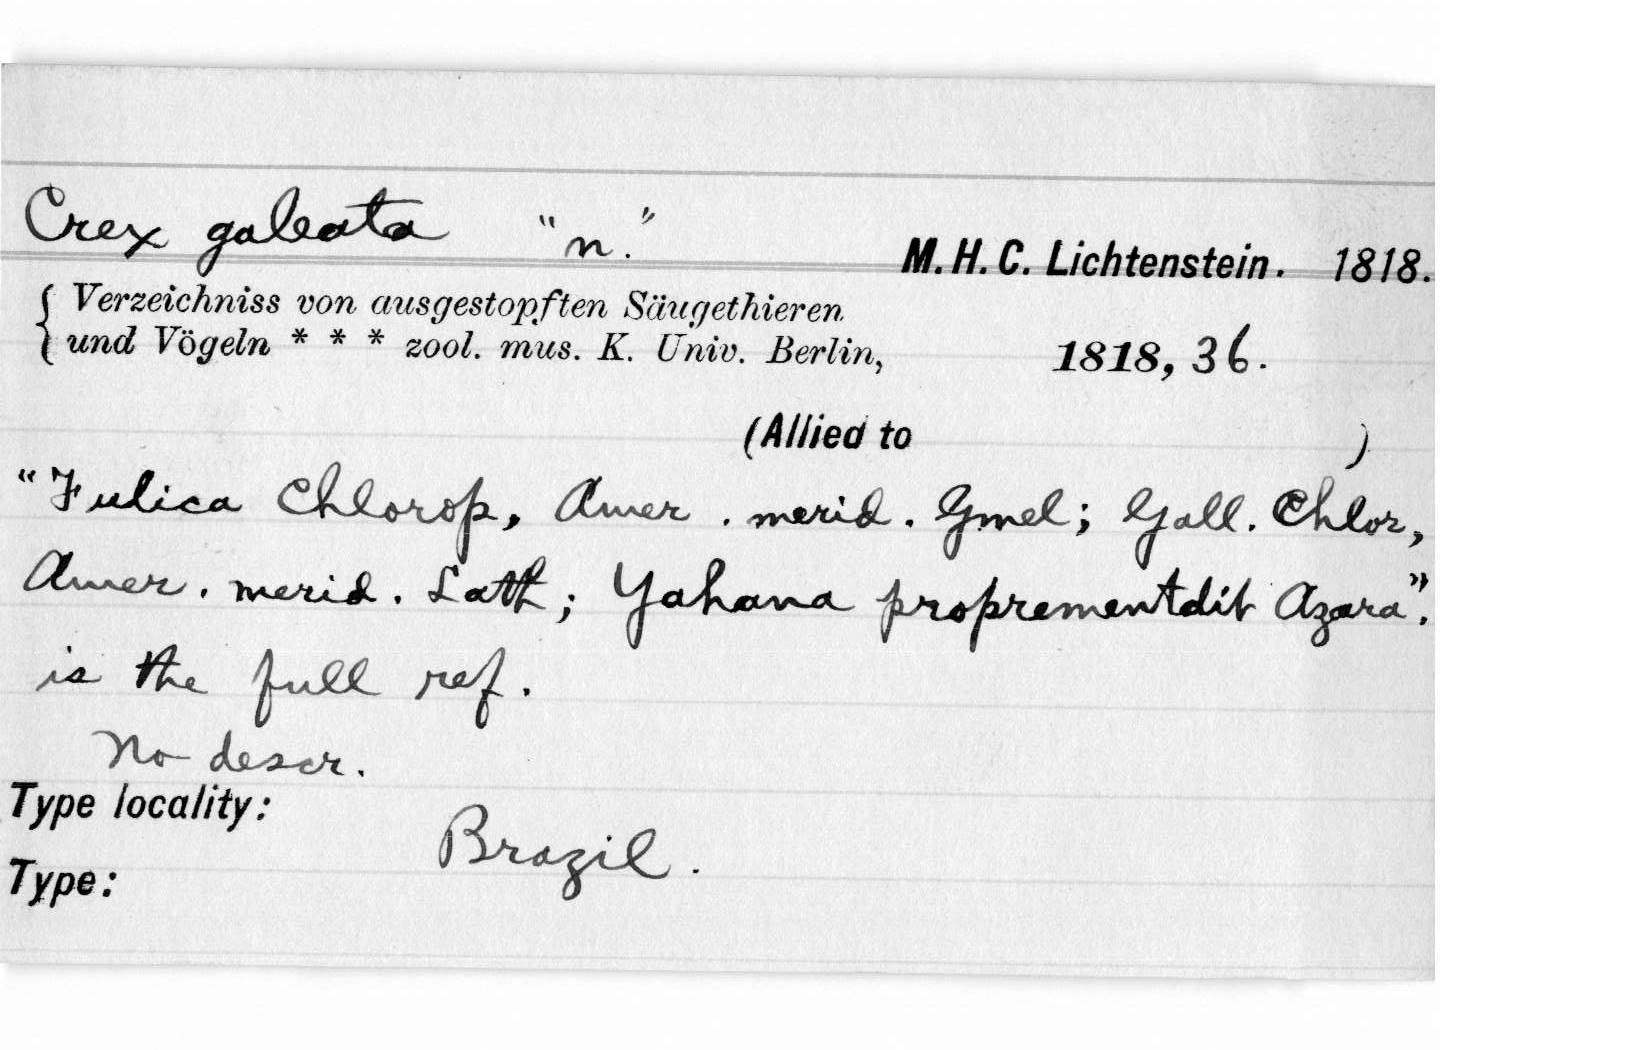 Crex galeata "n." M. H. C. Lichtenstein. 1818.
Verzeichniss von ausgestopften Säugethieren
und Vögeln * * * zool. mus. K. Univ. Berlin, 1818, 36.
(Allied to )
"Fulica Chlorop, Amer. merid. Gmel; Gall. Chlor,
Amer. merid. Lath; Yahana proprementdit Azara".
is the full ref.
No descr.
Type locality:
Brazil.
Type: